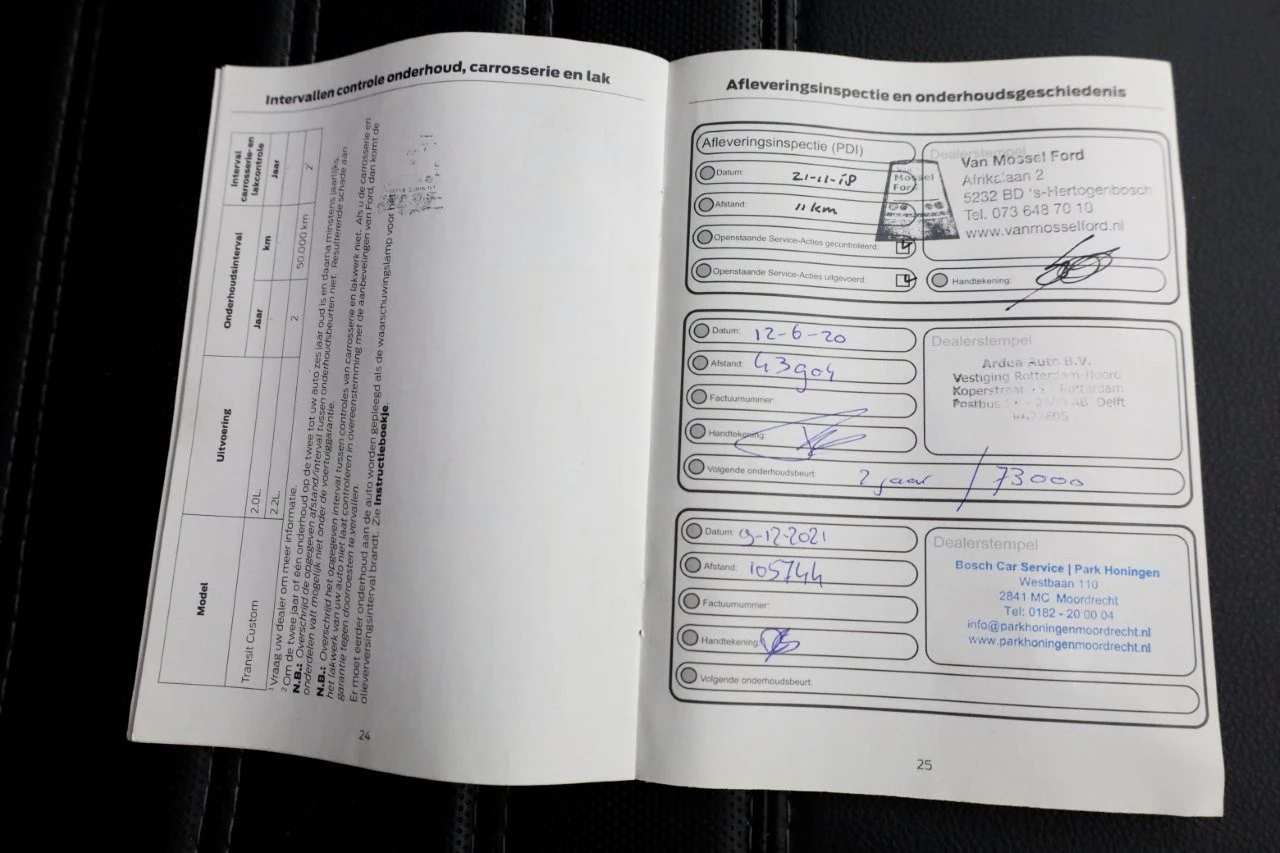 Intervallen controle onderhoud, carrosserie en lak
Model
Uitvoering
Onderhoudsinterval
Interval
carrosserie-en
lakcontrole
Jaar
km
Jaar
Transit Custom
2.0L.
2.2L.
2
50.000 km
2
¹ Vraag uw dealer om meer informatie.
² Om de twee jaar of één onderhoud op de twee tot uw auto zes jaar oud is en daarna minstens jaarlijks.
N.B.: Overschrijd de opgegeven afstand/interval tussen onderhoudsbeurten niet. Resulterende schade aan
onderdelen valt mogelijk niet onder de voertuiggarantie.
N.B.: Overschrijd het opgegeven interval tussen controles van carrosserie en lakwerk niet. Als u de carrosserie en
het lakwerk van uw auto niet laat controleren in overeenstemming met de aanbevelingen van Ford, dan komt de
garantie tegen doorroesten te vervallen.
Er moet eerder onderhoud aan de auto worden gepleegd als de waarschuwingslamp voor het
olieverversingsinterval brandt. Zie Instructieboekje.
24
Afleveringsinspectie en onderhoudsgeschiedenis
Afleveringsinspectie (PDI)
Datum: 21-11-18
Afstand: 11 km
Openstaande Service-Acties gecontroleerd:
Openstaande Service-Acties uitgevoerd:
Dealerstempel
Mossel
Ford
Van Mossel Ford
Afrikalaan 2
5232 BD 's-Hertogenbosch
Tel. 073 648 70 10
www.vanmosselford.nl
Handtekening:
Datum: 12-6-20
Afstand: 43904
Factuurnummer:
Handtekening:
Volgende onderhoudsbeurt: 2 jaar / 73000
Dealerstempel
Ardea Auto B.V.
Vestiging Rotterdam-Noord
Koperstraat Rotterdam
Postbus AB Delft
Datum: 9-12-2021
Afstand: 105744
Factuurnummer:
Handtekening:
Volgende onderhoudsbeurt:
Dealerstempel
Bosch Car Service | Park Honingen
Westbaan 110
2841 MC Moordrecht
Tel: 0182 - 20 00 04
info@parkhoningenmoordrecht.nl
www.parkhoningenmoordrecht.nl
25